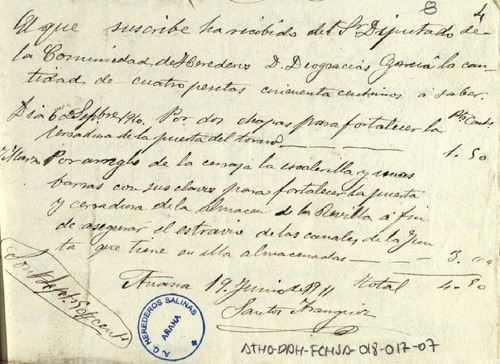 8 4
El que suscribe ha recibido del Sr Diputado de
la Comunidad de Herederos D. Deogracias García la can-
tidad de cuatro pesetas cincuenta centimos á saber.
Pts Cents
Dia 6 de Sepbre 1910. Por dos chapas para fortalecer la
cerradura de la puerta del torno 1.50
Marzo Por arreglo de la cerraja la escalerilla y unas
barras con sus clavos para fortalecer la puerta
y cerradura de la Almacen de la Revilla á fin
de asegurar el estravio de las canales de la Jun-
ta que tiene en ella almacenadas 3. "
Total 4-50
Anana 19 Junio de 1911
Santos
A. C. HEREDEROS SALINAS
AÑANA
ATHA-DAH-FCHSA-018-017-07